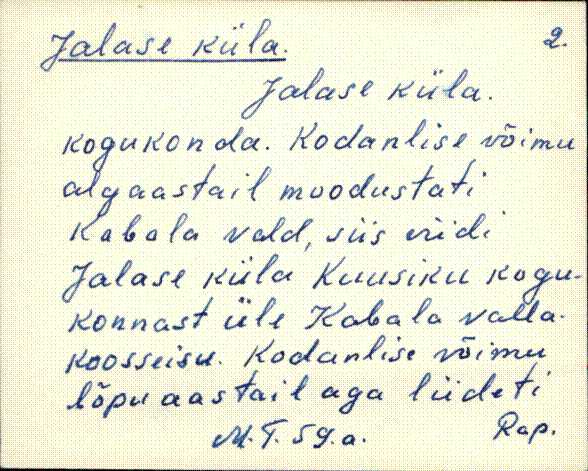 Jalase küla. 2.
Jalase küla.
kogukonda. Kodanlise võimu
algaastail moodustati
Kabala vald, siis viidi
Jalase küla Kuusiku kogu-
konnast üle Kabala valla-
koosseisu. Kodanlise võimu
lõpuaastail aga liideti
M.T. 59.a. Rap.